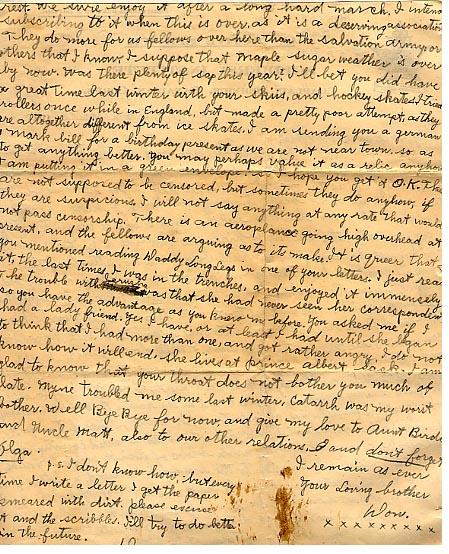 rest. We sure enjoy it after a long hard march. I intend
subscribing to it when this is over, as it is a deserving association
They do more for us fellows over here than the salvation army or
others that I know. I suppose that maple sugar weather is over
by now. Was there plenty of sap this year? I'll bet you did have
a great time last winter with your skiis, and hockey skates. I tried
rollers once while in England, but made a pretty poor attempt, as they
are altogether different from ice skates. I am sending you a german
1 mark bill for a birthday present as we are not near town. so as
to get anything better. you may perhaps value it as a relic anyhow
I am putting it in a green envelope so I hope you get it O.K. The
are not supposed to be censored, but sometimes they do anyhow, if
they are suspicious. I will not say anything at any rate that would
not pass censorship. There is an aeroplane going high overhead at
present, and the fellows are arguing as to its make. It is queer that
you mentioned reading Daddy Long Legs in one of your letters. I just read
it, the last time, I was in the trenches, and enjoyed it immensely
The trouble with was that she had never seen her correspondin
so you have the advantage as you know me before. You asked me if I
had a lady friend. Yes I have, or at least I had until she began
to think that I had more than one, and got rather angry. I do not
know how it will end. she lives at prince albert Sack. I am
glad to know that your throat does not bother you much of
late. Myne troubled me some last winter. Catarrh was my worst
bother. Well Bye Bye for now, and give my love to Aunt Birdie
and Uncle Matt, also to our other relations, and don't forget
Olga.
I remain as ever
Your Loving brother
Won.
x x x x x x x x
p.s. I don't know how, but every
time I write a letter I get the paper
smeared with dirt. please excuse
it and the scribbles. I'll try to do bette
in the future.